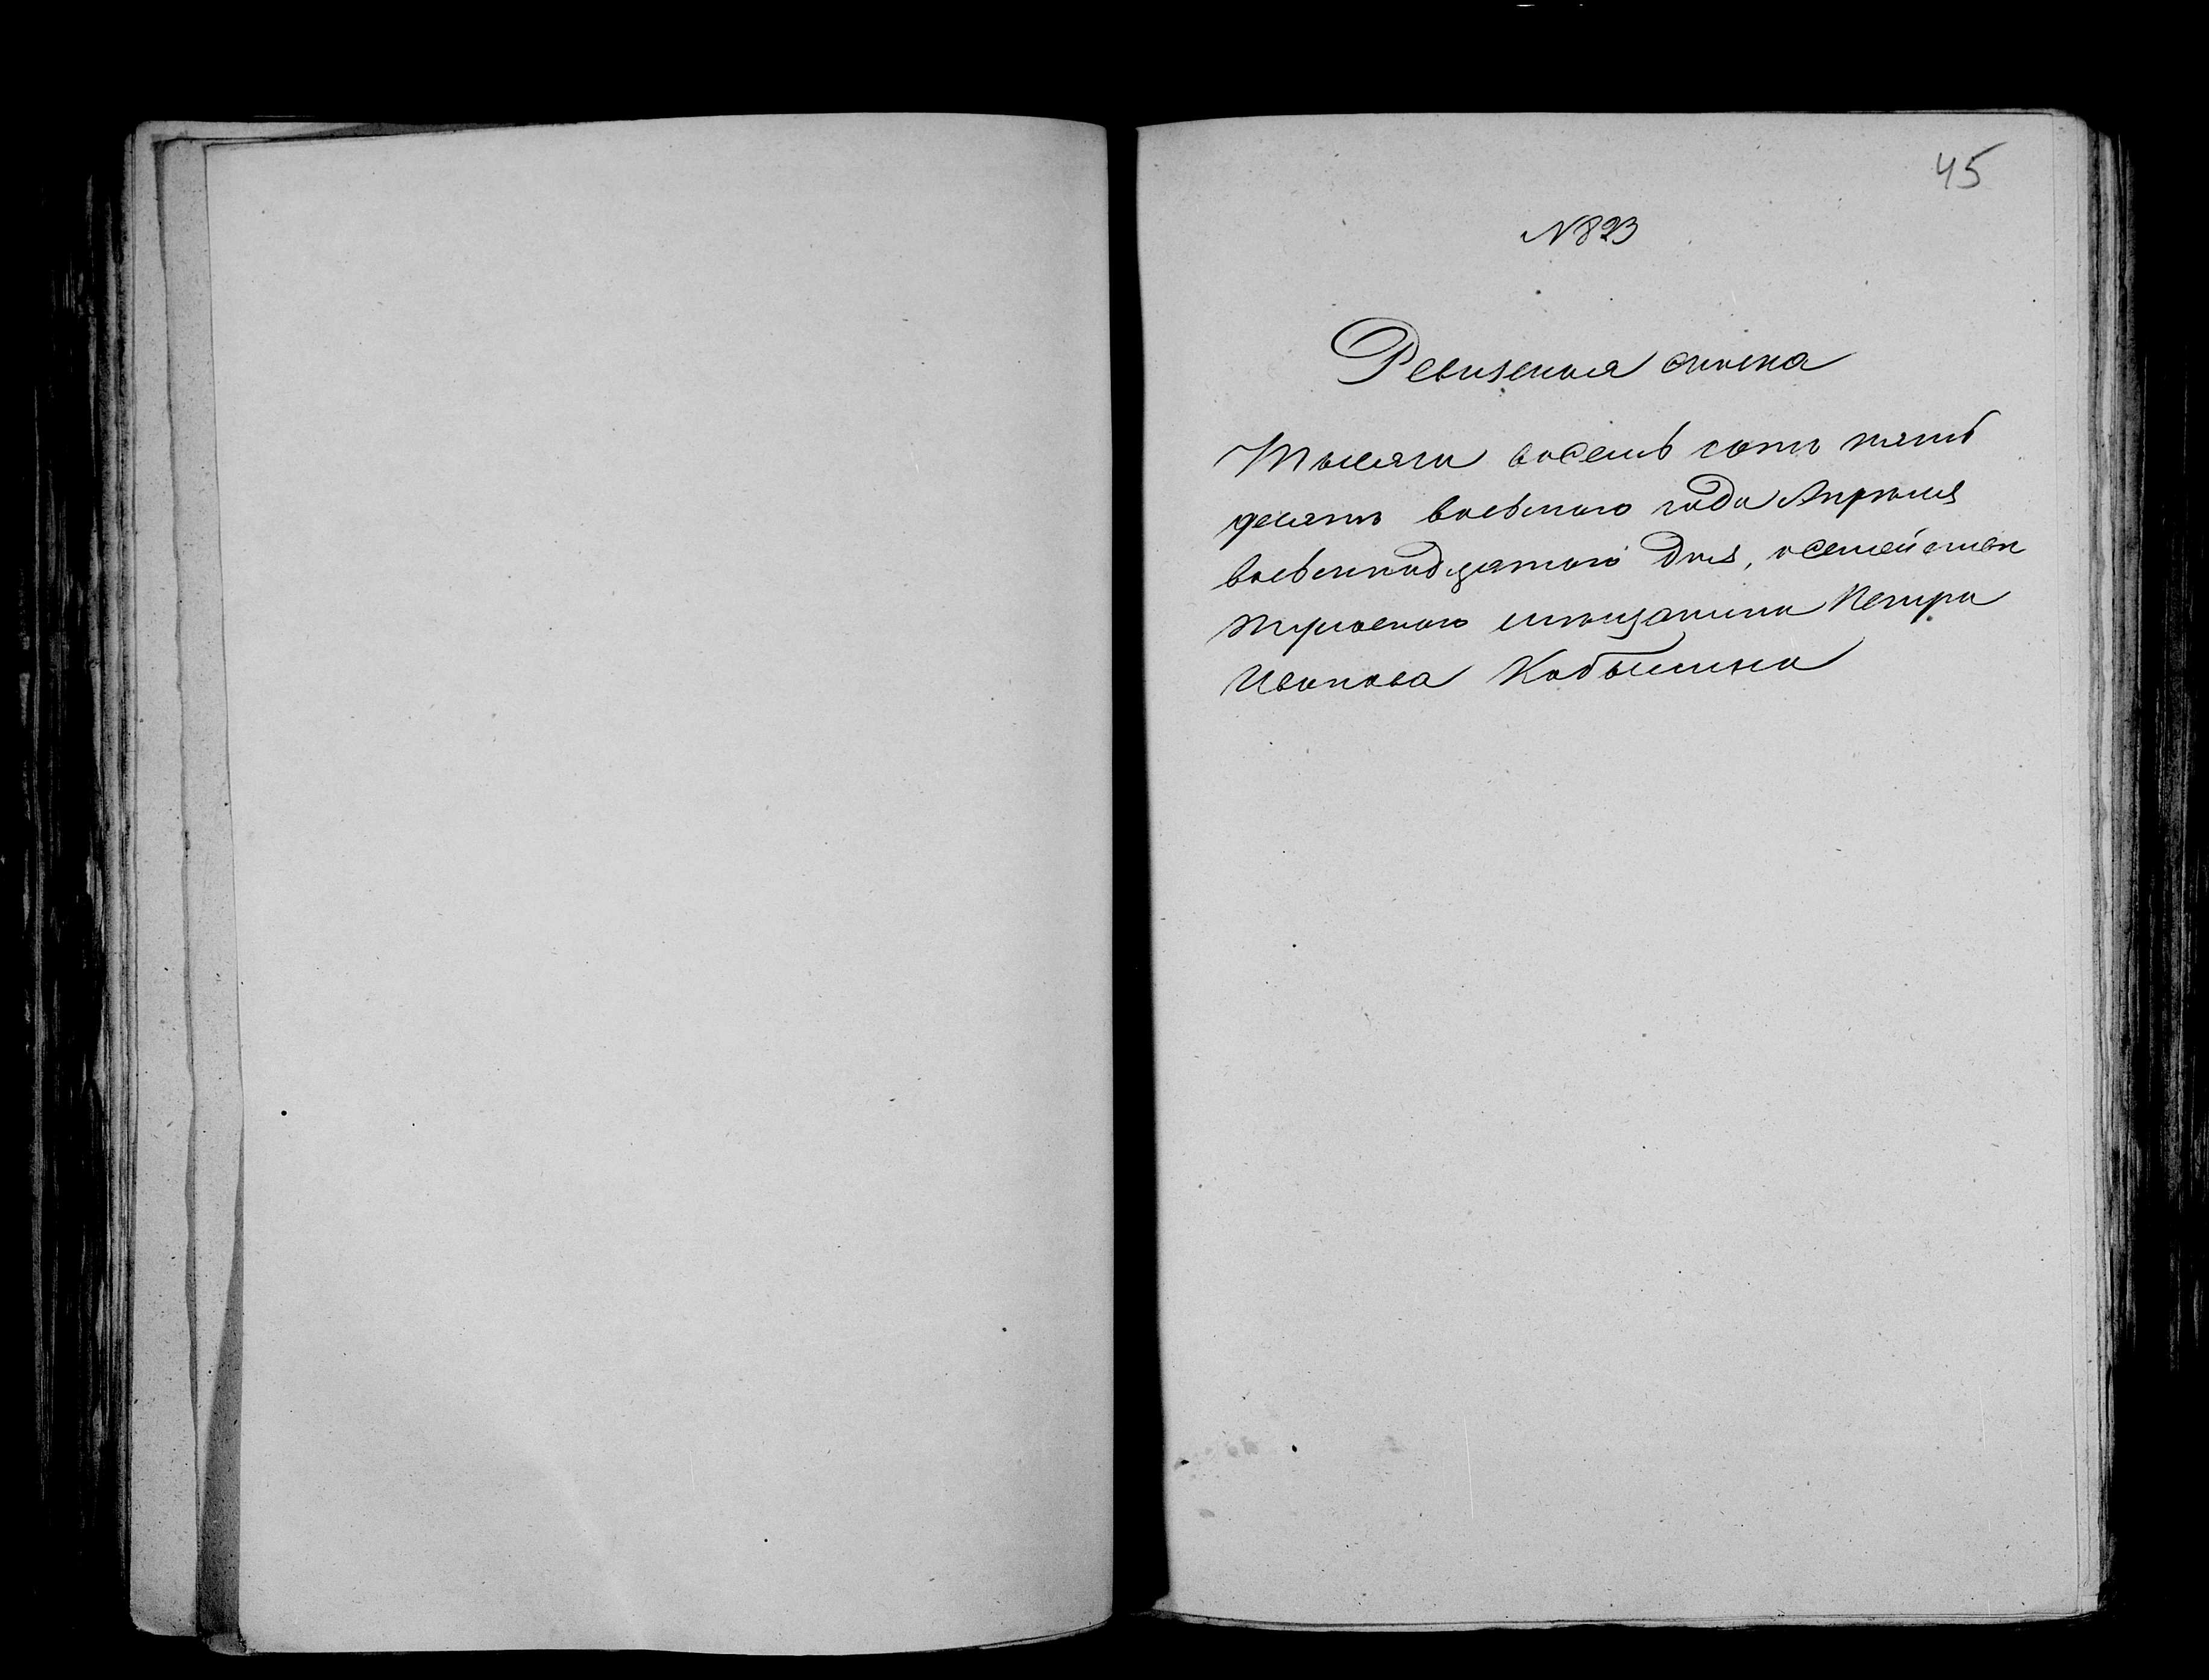 45
№ 823
Ревизская сказка
Тысяча восемь сотъ пять
десятъ восьмаго года Апреля
восьмнадцатого дня, о семействе
мещанина Петра
Иванова